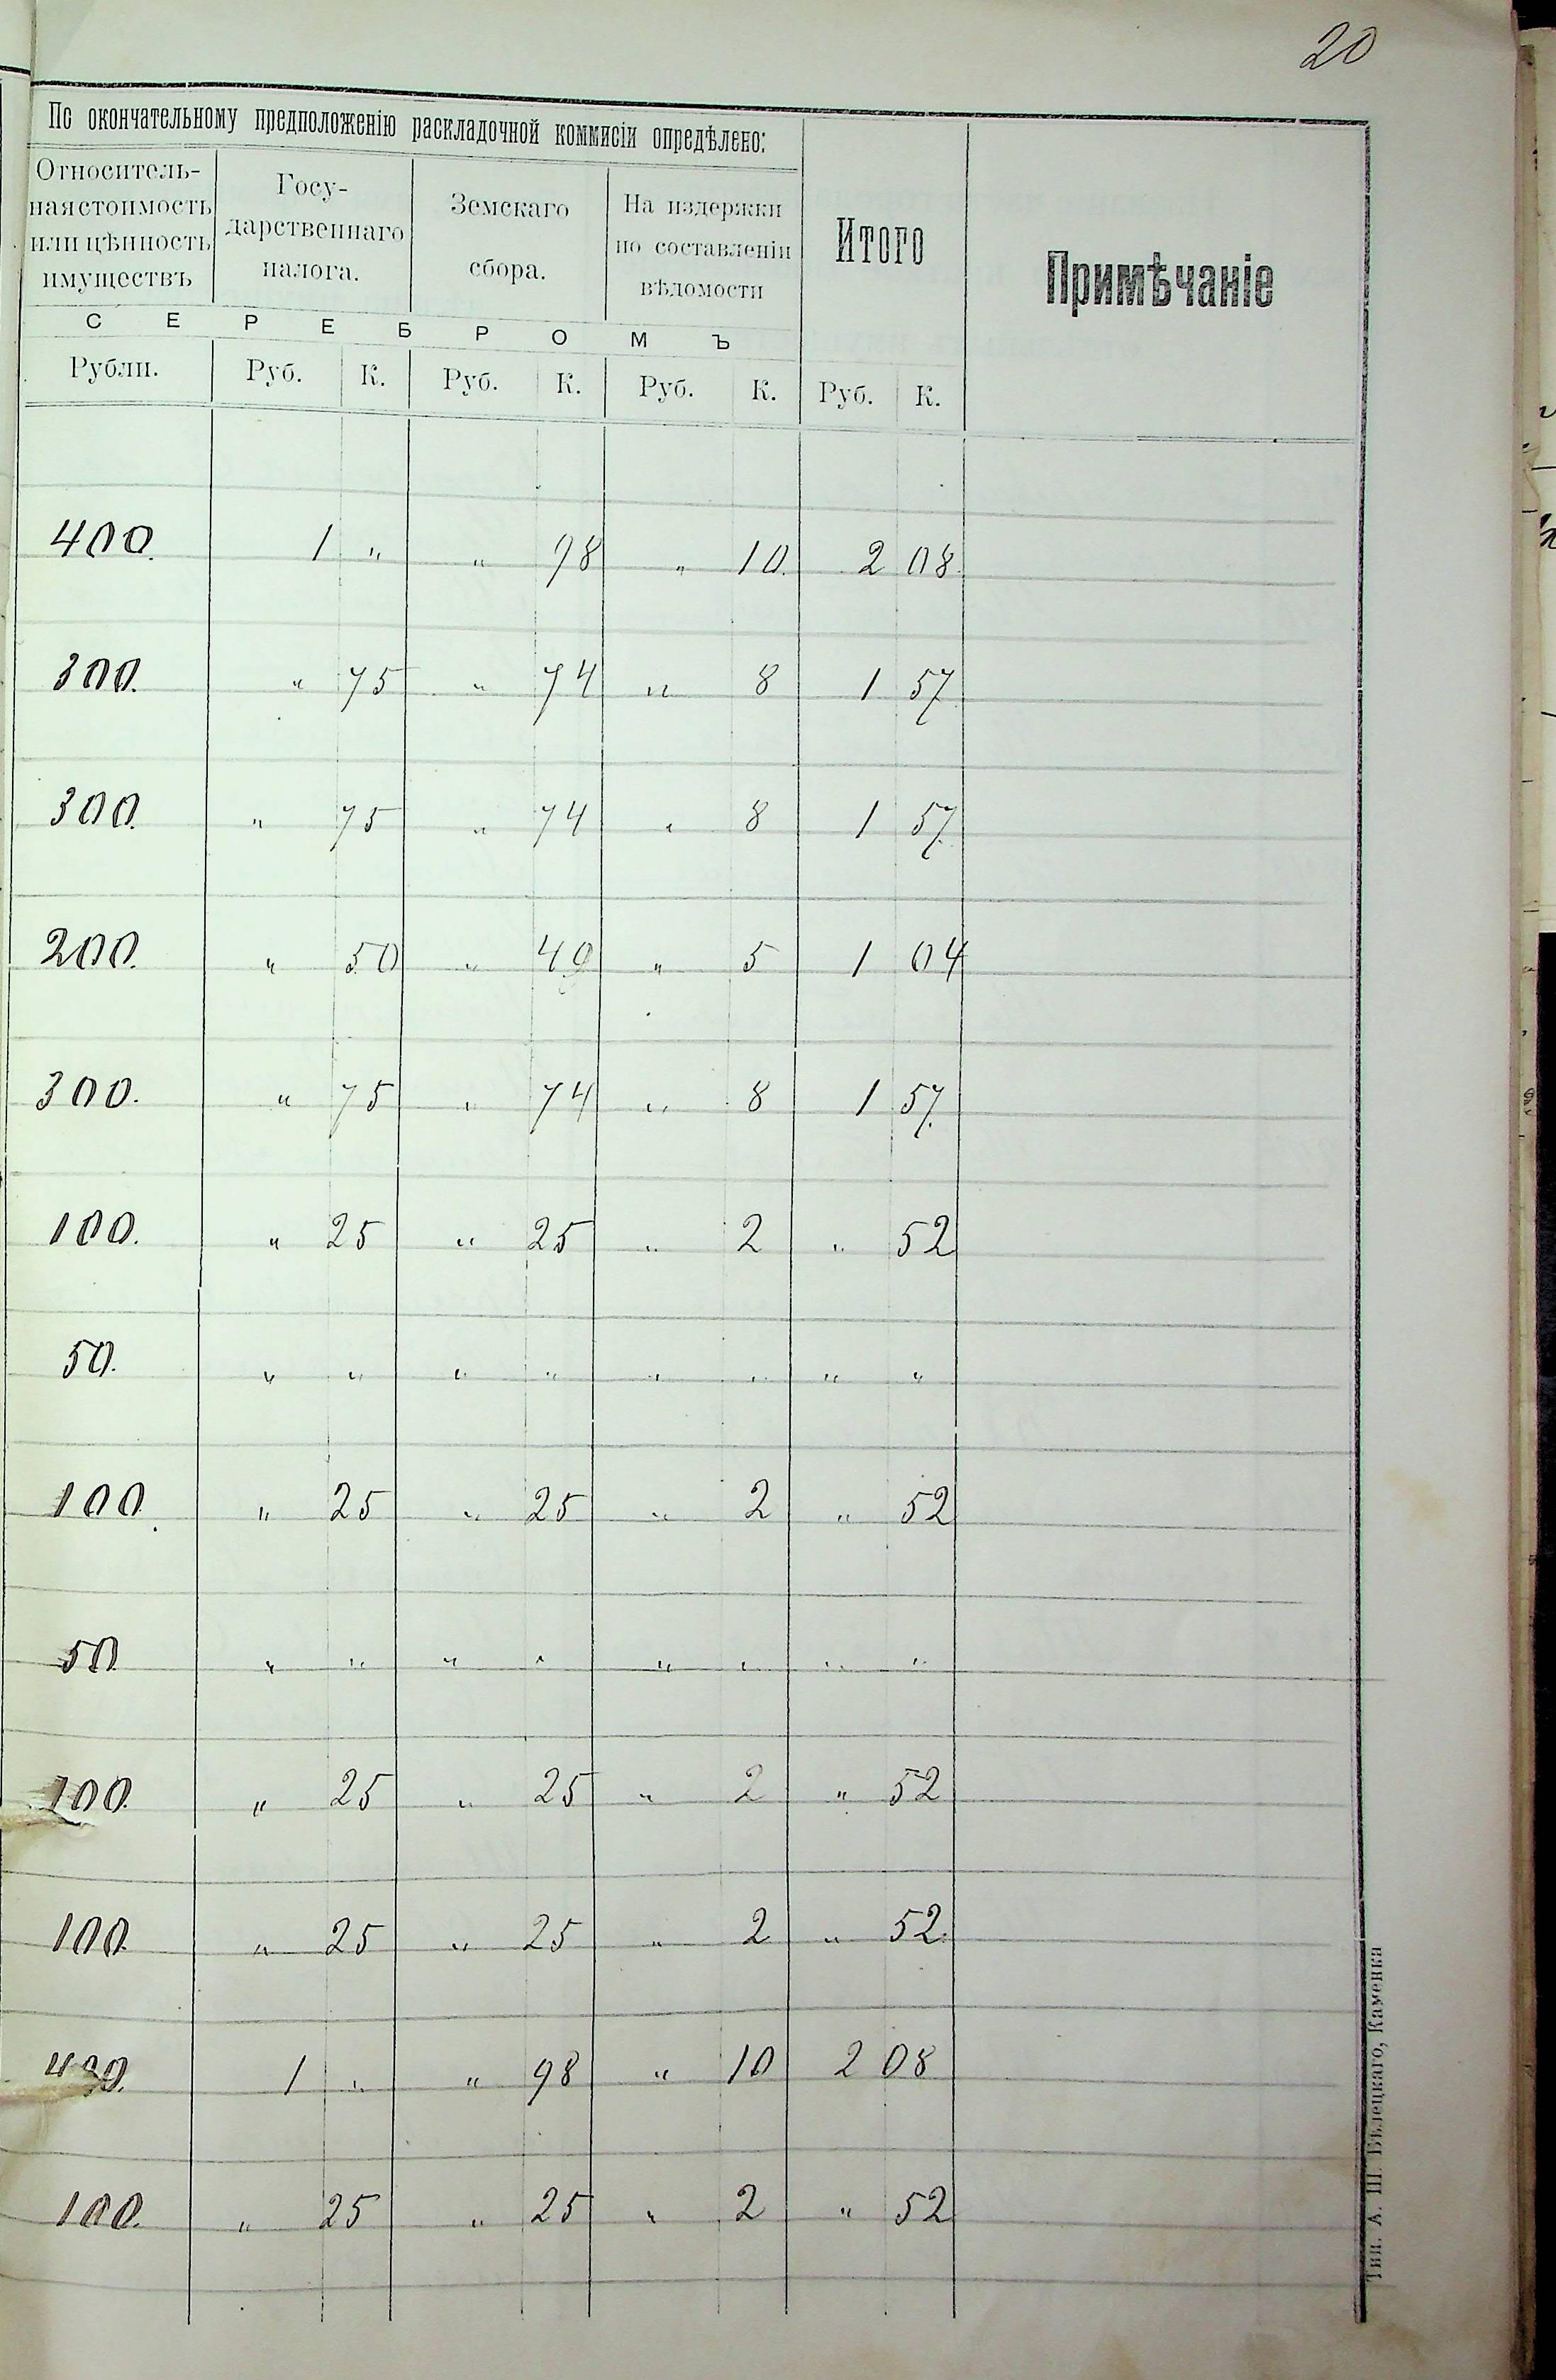 20
По окончательному предположенію раскладочной коммисіи опредѣлено:
Относитель-
ная стоимость
или цѣнность
имуществъ
Госу-
дарственнаго
налога.
Земскаго
сбора.
На издержки
по составленіи
вѣдомости
Итого
Примѣчаніе
С Е Р Е Б Р О М Ъ
Рубли. Руб. К. Руб. К. Руб. К. Руб. К.
400. 1 " " 98 " 10. 2 08.
300. " 75 " 74 " 8 1 57
300. " 75 " 74 " 8 1 57.
200. " 50 " 49 " 5 1 04
300. " 75 " 74 " 8 1 57.
100. " 25 " 25 " 2 " 52
50. " " " " " " " "
100. " 25 " 25 " 2 " 52
50 " " " " " " " "
100. " 25 " 25 " 2 " 52
100. " 25 " 25 " 2 " 52.
400. 1 " " 98 " 10 2 08
100. " 25 " 25 " 2 " 52
Тип. А. Ш. Бѣлецкаго, Каменка